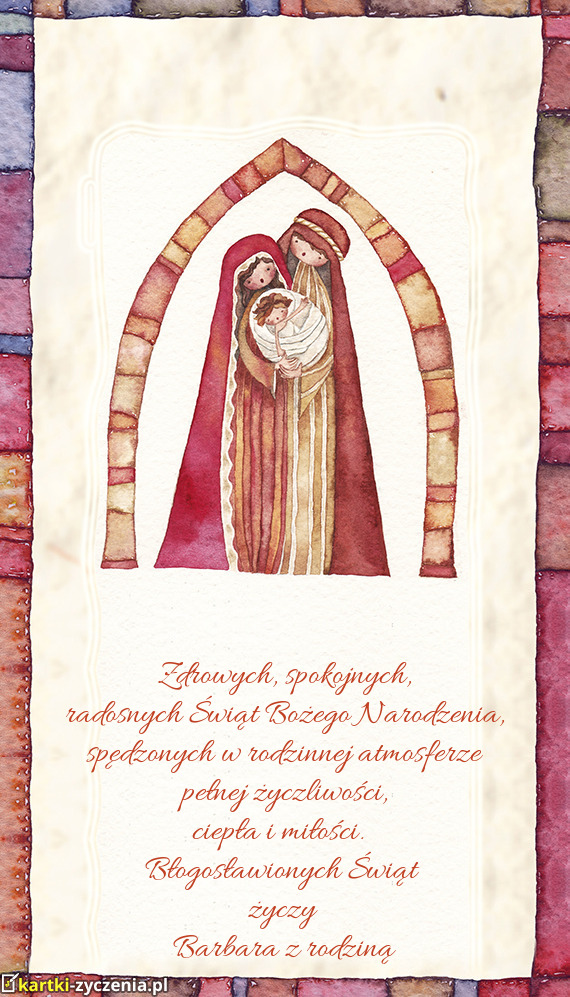 Zdrowych, spokojnych,
radosnych Świąt Bożego Narodzenia,
spędzonych w rodzinnej atmosferze
pełnej życzliwości,
ciepła i miłości.
Błogosławionych Świąt
życzy
Barbara z rodziną
kartki-zyczenia.pl